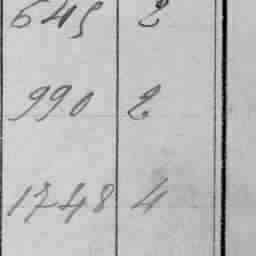 645 2
990 2
1748 4